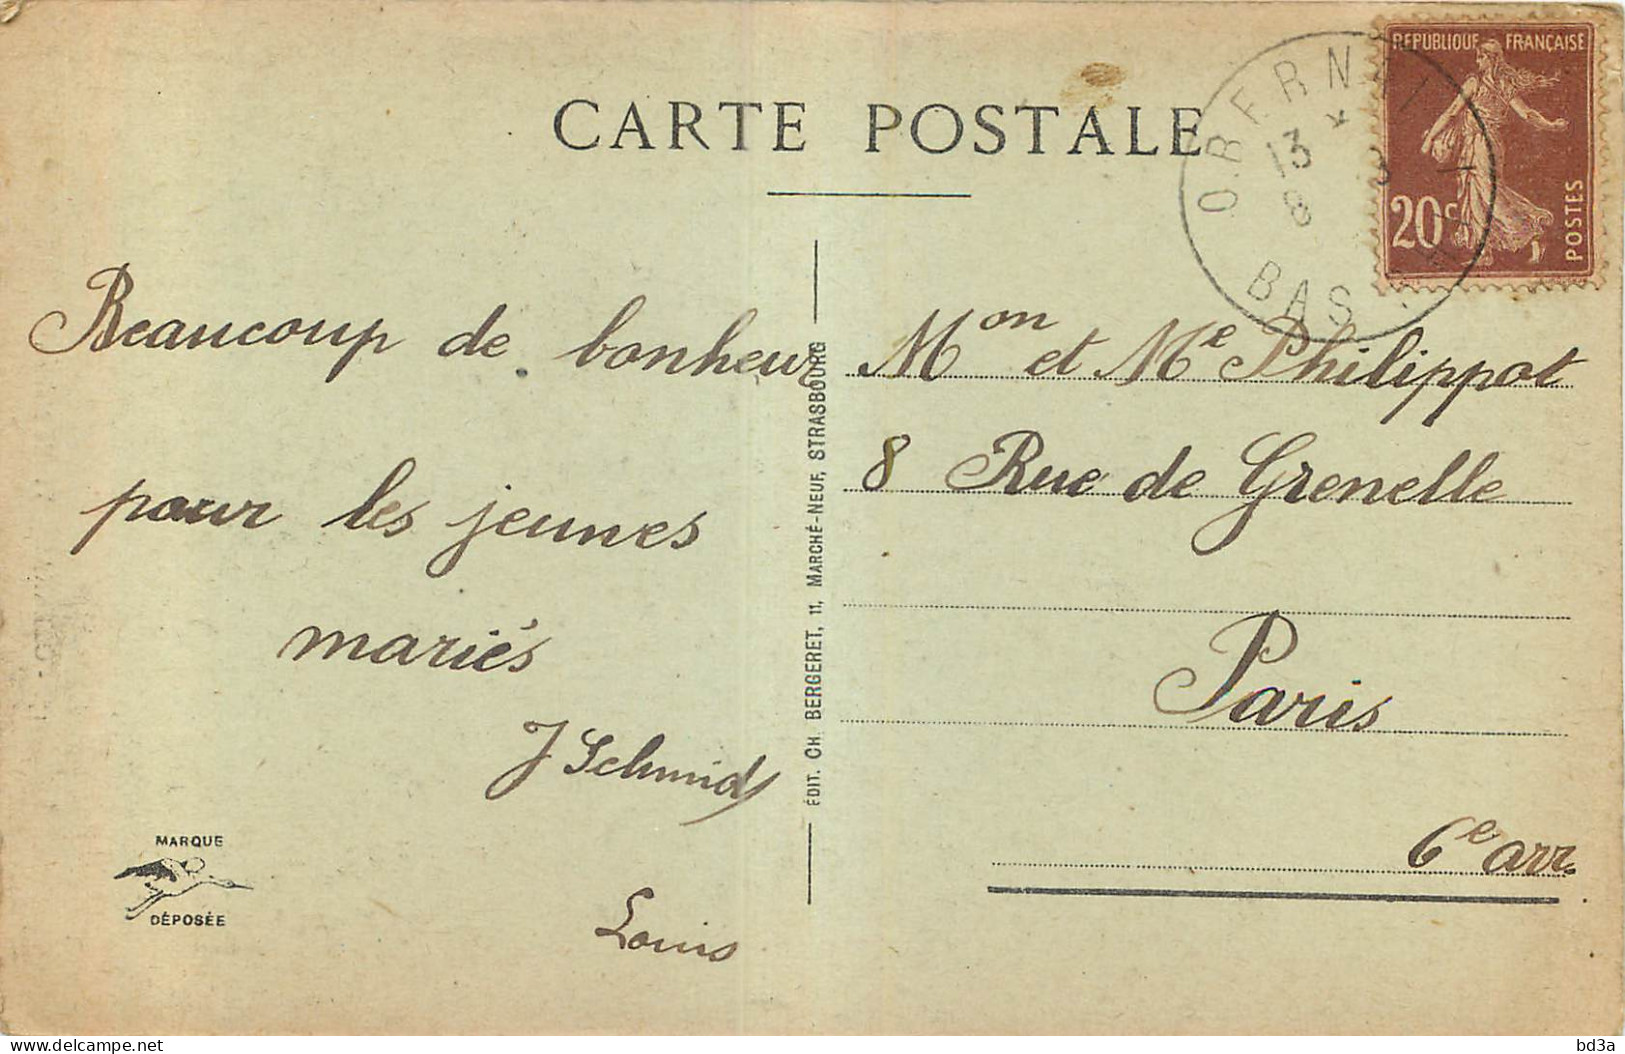 CARTE POSTALE
REPUBLIQUE FRANÇAISE
20c
POSTES
OBERNAI
13
8
BAS
Beaucoup de bonheur
pour les jeunes
mariés
J Schmid
Louis
MARQUE
DÉPOSÉE
ÉDIT. CH. BERGERET, 11, MARCHÉ-NEUF, STRASBOURG
Mon et Me Philippot
8 Rue de Grenelle
Paris
6e arr.
delcampe.net
bd3a